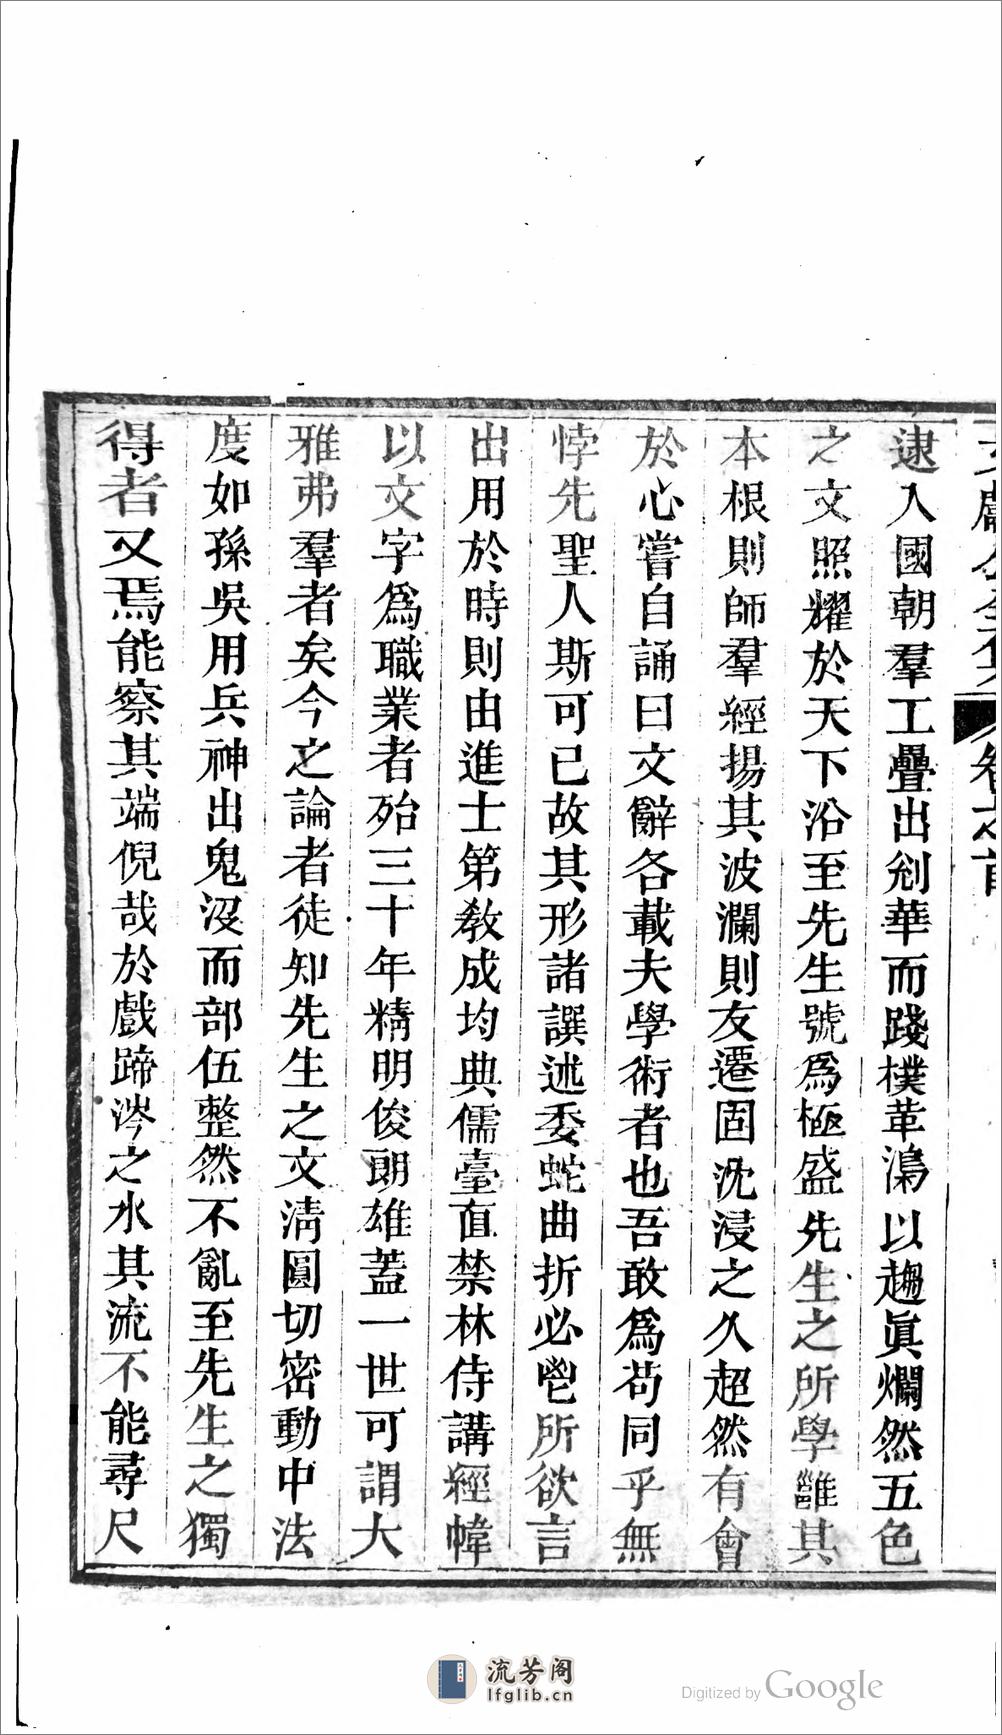 文獻公全集
卷之首
逮入國朝羣工疊出剗華而踐樸革澆以趨眞爛然五色
之文照耀於天下沿至先生號爲極盛先生之所學雖其
本根則師羣經揚其波瀾則友遷固沈浸之久超然有會
於心嘗自誦曰文辭各載夫學術者也吾敢爲苟同乎無
悖先聖人斯可已故其形諸譔述委蛇曲折必鬯所欲言
出用於時則由進士第敎成均典儒臺直禁林侍講經幃
以文字爲職業者殆三十年精明俊朗雄蓋一世可謂大
雅弗羣者矣今之論者徒知先生之文淸圓切密動中法
度如孫吳用兵神出鬼沒而部伍整然不亂至先生之獨
得者又焉能察其端倪哉於戲蹄涔之水其流不能尋尺
流芳阁
lfglib.cn
Digitized by Google